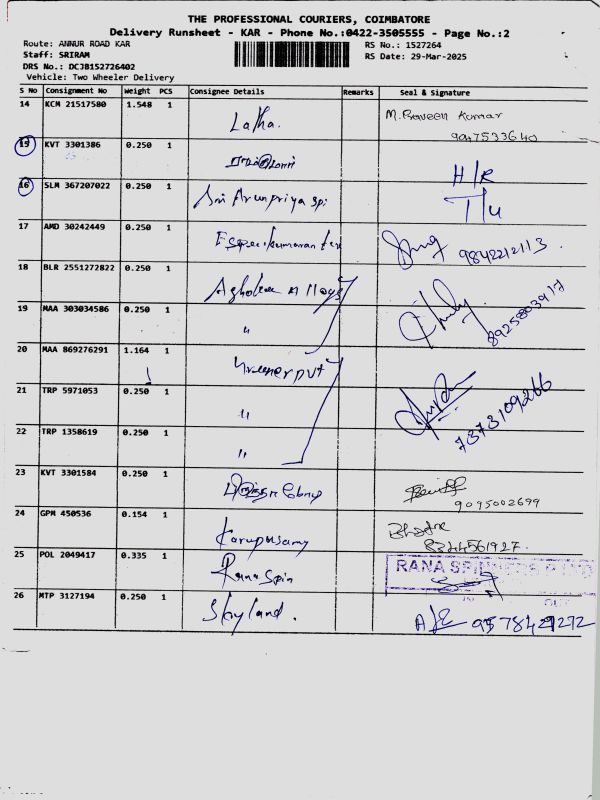 THE PROFESSIONAL COURIERS, COIMBATORE
Delivery Runsheet - KAR - Phone No.:0422-3505555 - Page No.:2
Route: ANNUR ROAD KAR
RS No.: 1527264
Staff: SRIRAM
RS Date: 29-Mar-2025
DRS No.: DCJB152726402
Vehicle: Two Wheeler Delivery
S No Consignment No Weight PCS Consignee Details Remarks Seal & Signature
14 KCM 21517580 1.548 1 Latha. M. Praveen Kumar
15 KVT 3301386 0.250 1 H/R
16 SLM 367207022 0.250 1 Sri Arunpriya spi T/U
17 AMD 30242449 0.250 1 9842212113.
18 BLR 2551272822 0.250 1
19 MAA 303034586 0.250 1 " 8925803917
20 MAA 869276291 1.164 1
21 TRP 5971053 0.250 1 " 7373109266
22 TRP 1358619 0.250 1 "
23 KVT 3301584 0.250 1 9095002699
24 GPM 450536 0.154 1 Karupusamy
25 POL 2049417 0.335 1 Rana Spin RANA SPINNERS
26 MTP 3127194 0.250 1 Skyland.